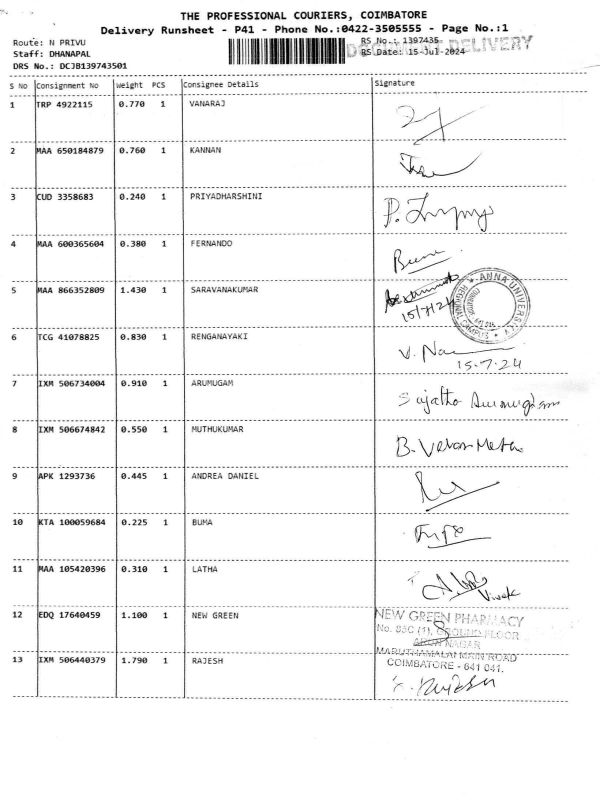 THE PROFESSIONAL COURIERS, COIMBATORE
Delivery Runsheet - P41 - Phone No.:0422-3505555 - Page No.:1
Route: N PRIVU
Staff: DHANAPAL
DRS No.: DCJB139743501
RS No.: 1397435
RS Date: 15-Jul-2024
DELIVERY
S No Consignment No Weight PCS Consignee Details Signature
1 TRP 4922115 0.770 1 VANARAJ
2 MAA 650184879 0.760 1 KANNAN
3 CUD 3358683 0.240 1 PRIYADHARSHINI
4 MAA 600365604 0.380 1 FERNANDO
5 MAA 866352809 1.430 1 SARAVANAKUMAR
15/7/24
ANNA UNIVERSITY
REGIONAL CAMPUS
COIMBATORE
641 046
6 TCG 41078825 0.830 1 RENGANAYAKI
15-7-24
7 IXM 506734004 0.910 1 ARUMUGAM Sujatha Arumugham
8 IXM 506674842 0.550 1 MUTHUKUMAR
9 APK 1293736 0.445 1 ANDREA DANIEL
10 KTA 100059684 0.225 1 BUMA
11 MAA 105420396 0.310 1 LATHA
Vivek
12 EDQ 17640459 1.100 1 NEW GREEN
NEW GREEN PHARMACY
No. 85C (1), GROUND FLOOR
ARUN NAGAR
MARUTHAMALAI MAIN ROAD
COIMBATORE - 641 041.
13 IXM 506440379 1.790 1 RAJESH